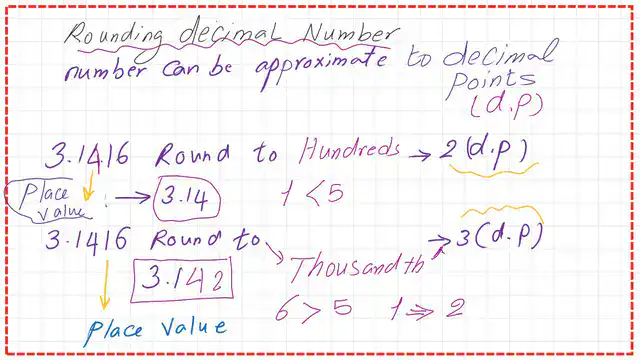 Rounding decimal Number
number can be approximate to decimal
points
(d.p)
3.1416 Round to Hundreds → 2 (d.p)
Place
value
→ 3.14
1 < 5
3.1416 Round to
→ 3 (d.p)
Thousandth
3.142
6 > 5 1 ⇒ 2
place value